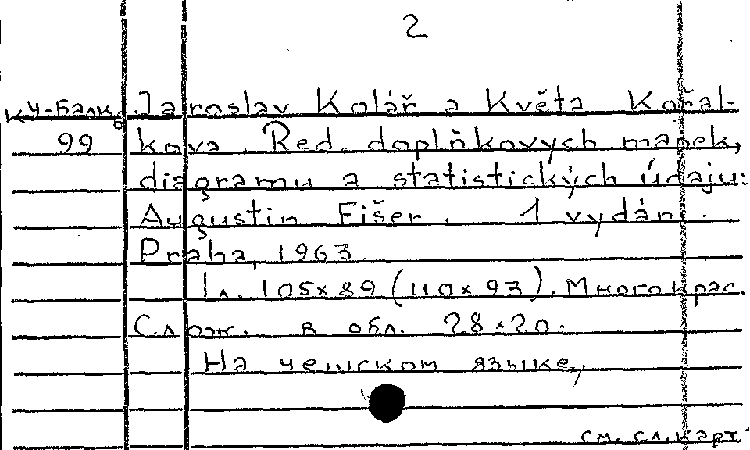 2
КУ-Балк. Jaroslav Kolář a Květa Kořal-
99 kova. Red. doplňkovych mapek,
diagramu a statistických údaju:
Augustin Fišer. 1 vydán.
Praha, 1963
1 л. 105x89 (110x93). Многокрас.
Слож. в обл. 28x20.
На чешском языке,
см. сл. карт